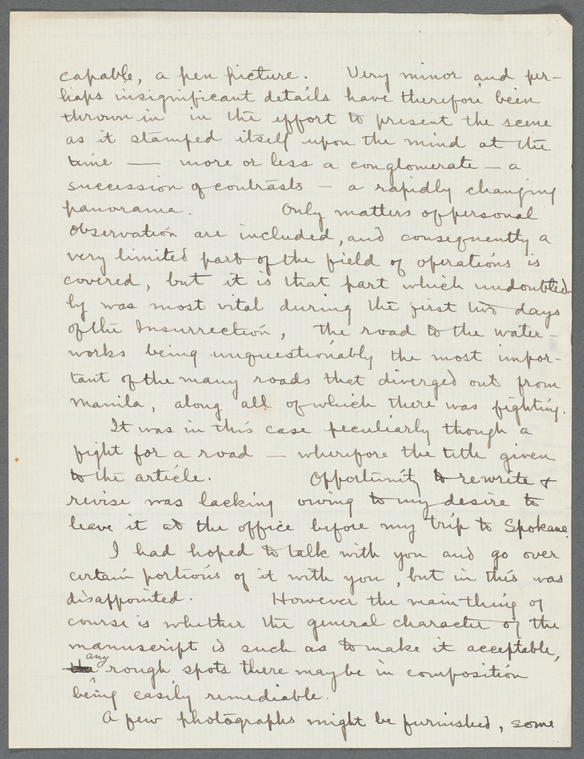 capable, a pen picture. Very minor and per-
haps insignificant details have therefore been
thrown in in the effort to present the scene
as it stamped itself upon the mind at the
time — more or less a conglomerate — a
succession of contrasts — a rapidly changing
panorama. Only matters of personal
observation are included, and consequently a
very limited part of the field of operations is
covered, but it is that part which undoubted-
ly was most vital during the first two days
of the Insurrection, the road to the water-
works being unquestionably the most impor-
tant of the many roads that diverged out from
Manila, along all of which there was fighting.
It was in this case peculiarly though a
fight for a road — wherefore the title given
to the article. Opportunity to rewrite &
revise was lacking owing to my desire to
leave it at the office before my trip to Spokane.
I had hoped to talk with you and go over
certain portions of it with you, but in this was
disappointed. However the main thing of
course is whether the general character of the
manuscript is such as to make it acceptable,
any rough spots there may be in composition
being easily remediable.
A few photographs might be furnished, some